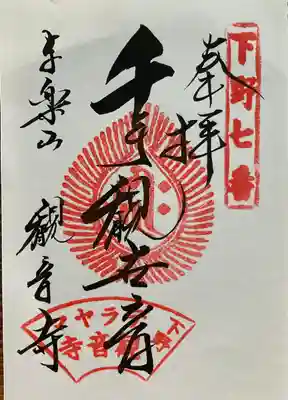 下野七番
奉拝
千手観世音
与楽山
観音寺
下野
ラヤマ
観音寺